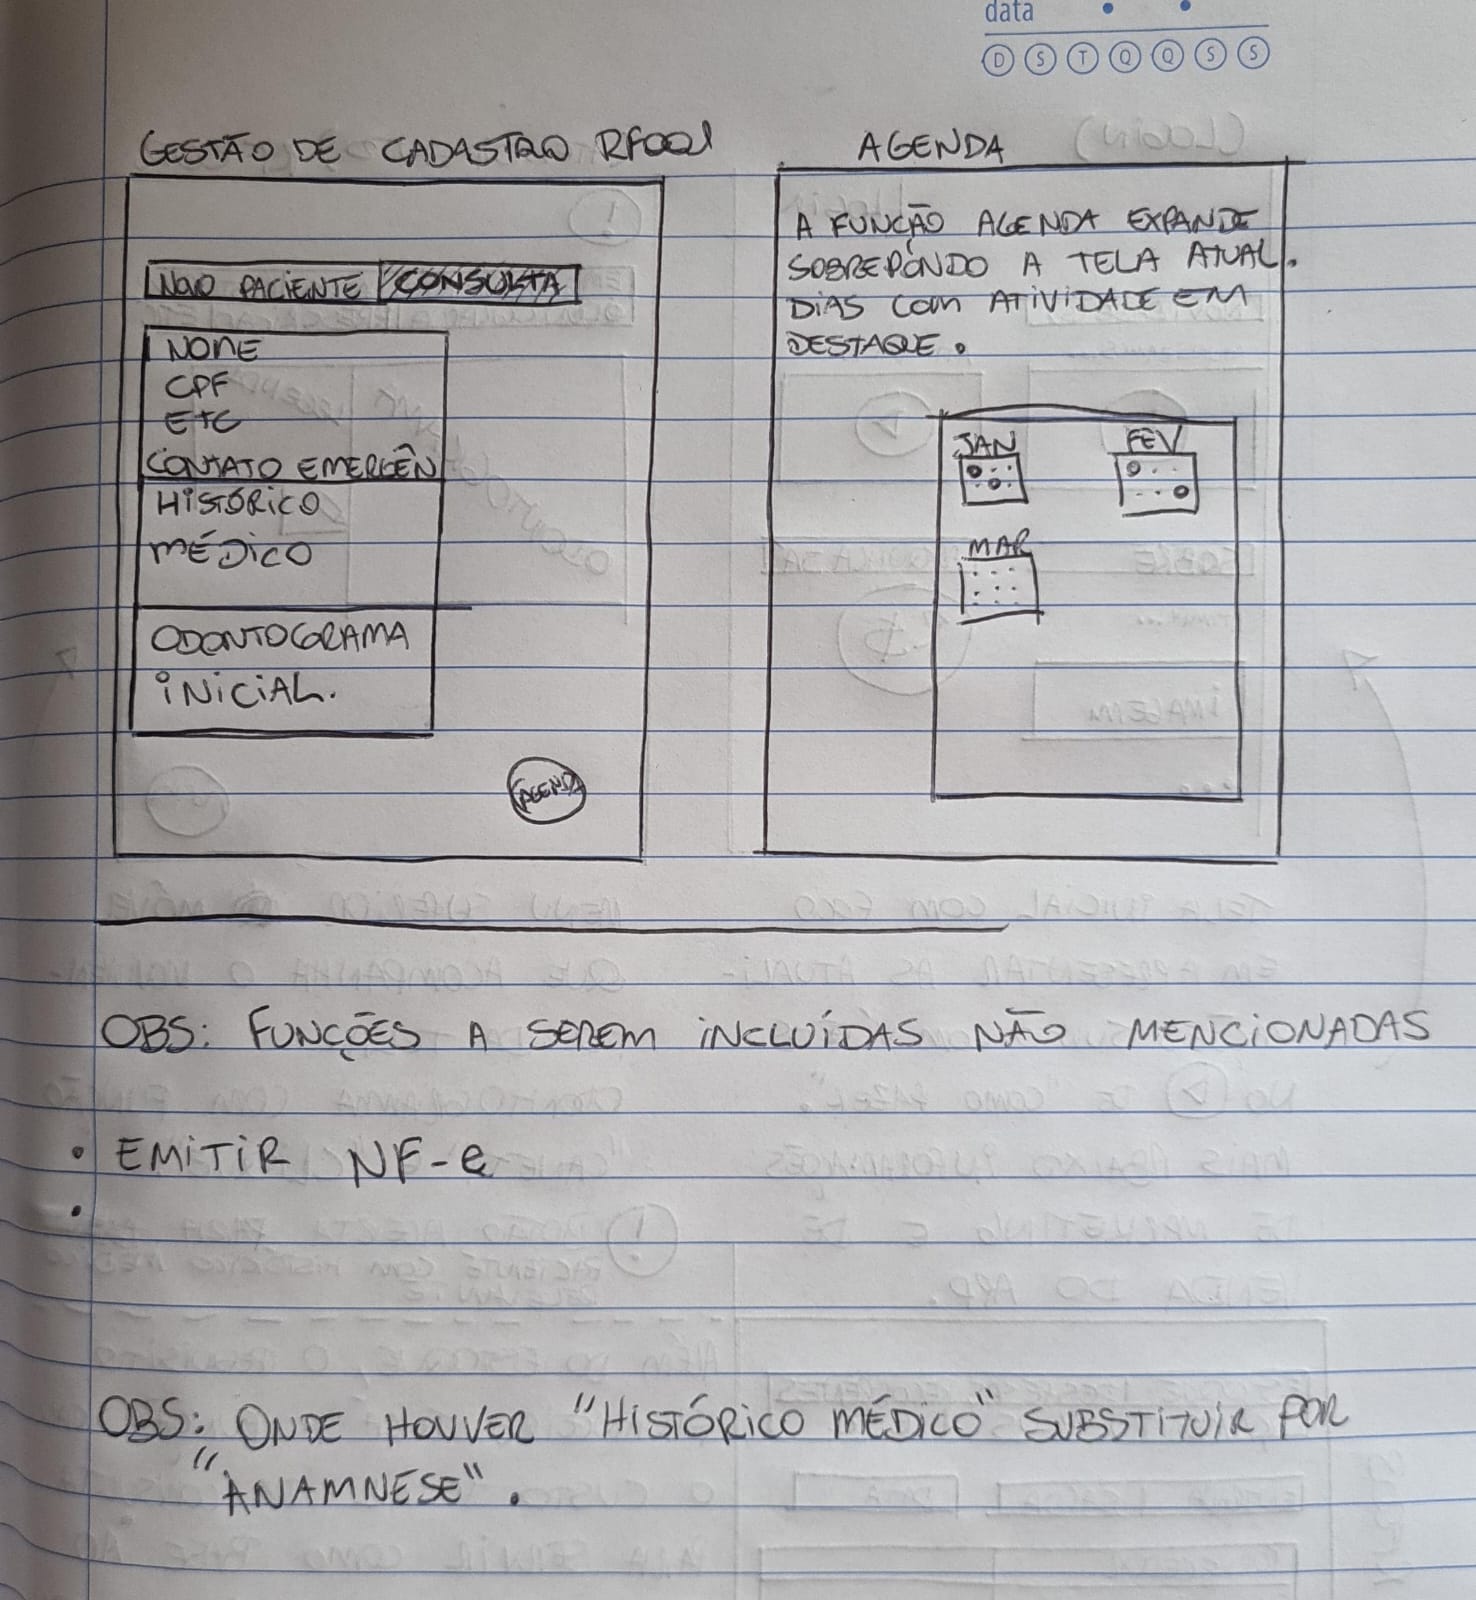 data
D S T Q Q S S
GESTÃO DE CADASTRO RF001
NOVO PACIENTE CONSULTA
NOME
CPF
ETC
CONTATO EMERGÊN
HISTÓRICO
MÉDICO
ODONTOGRAMA
INICIAL.
AGENDA
AGENDA
A FUNÇÃO AGENDA EXPANDE
SOBREPONDO A TELA ATUAL.
DIAS COM ATIVIDADE EM
DESTAQUE.
JAN FEV
MAR
OBS: FUNÇÕES A SEREM INCLUÍDAS NÃO MENCIONADAS
• EMITIR NF-e
•
OBS: ONDE HOUVER "HISTÓRICO MÉDICO" SUBSTITUIR POR
"ANAMNESE".